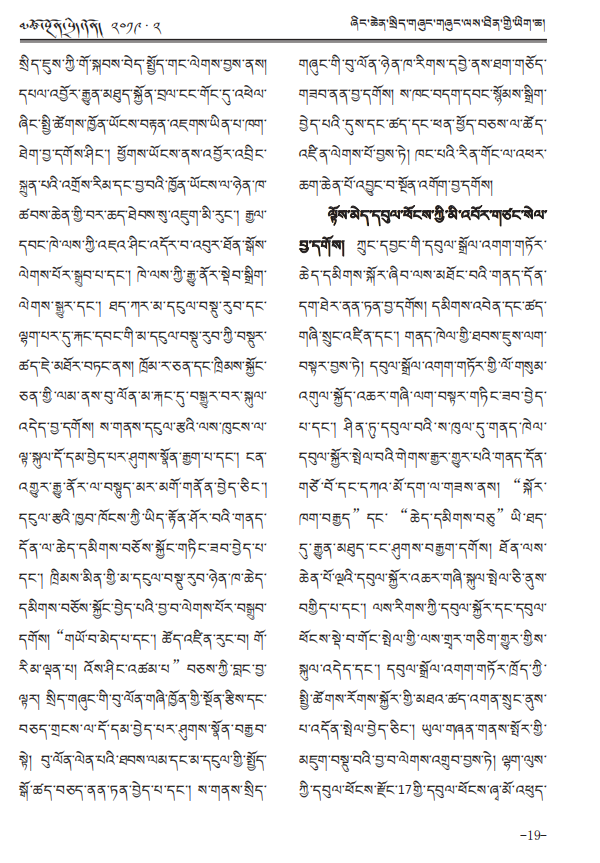 ༢༠༡༩ · ༢
ཞིང་ཆེན་སྲིད་གཞུང་གཞུང་ལས་ཐིན་གྱི་ཡིག་ཆ།
སྲིད་ཇུས་ཀྱི་གོ་སྐབས་བེད་སྤྱོད་གང་ལེགས་བྱས་ནས།
དཔལ་འབྱོར་རྒྱུན་མཐུད་སྐྱོན་བྲལ་ངང་གོང་དུ་འཕེལ་
ཞིང་སྤྱི་ཚོགས་ཁྱོན་ཡོངས་བརྟན་འཇགས་ཡིན་པ་ཁག་
ཐེག་བྱ་དགོས་ཤིང་། ཕྱོགས་ཡོངས་ནས་འབྱོར་འབྲིང་
སྐྲུན་པའི་འགྲོས་རིམ་དང་བྱ་བའི་ཁྱོན་ཡོངས་ལ་ཉེན་ཁ་
ཚབས་ཆེན་གྱི་བར་ཆད་ཐེབས་སུ་འཇུག་མི་རུང་། རྒྱལ་
དབང་ཁེ་ལས་ཀྱི་འཛའ་ཤིང་འདོར་བ་འབུར་ཐོན་སྒོས་
ལེགས་པོར་སྒྲུབ་པ་དང་། ཁེ་ལས་ཀྱི་རྒྱུ་ནོར་སྡེབ་སྒྲིག་
ལེགས་སྒྱུར་དང་། ཐད་ཀར་མ་དངུལ་བསྡུ་རུབ་དང་
ལྷག་པར་དུ་རྐང་དབང་གི་མ་དངུལ་བསྡུ་རུབ་ཀྱི་བསྡུར་
ཚད་ཇེ་མཐོར་བཏང་ནས། ཁྲོམ་ར་ཅན་དང་ཁྲིམས་སྐྱོང་
ཅན་གྱི་ལམ་ནས་བུ་ལོན་མ་རྐང་དུ་བསྒྱུར་བར་སྐུལ་
འདེད་བྱ་དགོས། ས་གནས་དངུལ་རྩའི་ལས་ཁུངས་ལ་
ལྟ་སྐུལ་དོ་དམ་བྱེད་པར་ཤུགས་སྣོན་རྒྱག་པ་དང་། ངན་
འགྱུར་རྒྱུ་ནོར་ལ་བསྟུད་མར་མགོ་གནོན་བྱེད་ཅིང་།
དངུལ་རྩའི་ཁྱབ་ཁོངས་ཀྱི་ཡིད་རྟོན་ཤོར་བའི་གནད་
དོན་ལ་ཆེད་དམིགས་བཅོས་སྐྱོང་གཏིང་ཟབ་བྱེད་པ་
དང་། ཁྲིམས་མིན་གྱི་མ་དངུལ་བསྡུ་རུབ་ཉེན་ཁ་ཆེད་
དམིགས་བཅོས་སྐྱོང་བྱེད་པའི་བྱ་བ་ལེགས་པོར་བསྒྲུབ་
དགོས། “གཡོ་བ་མེད་པ་དང་། ཚོད་འཛིན་རུང་བ། གོ་
རིམ་ལྡན་པ། འོས་ཤིང་འཚམ་པ” བཅས་ཀྱི་བླང་བྱ་
ལྟར། སྲིད་གཞུང་གི་བུ་ལོན་གཞི་ཁྱོན་གྱི་སྔོན་རྩིས་དང་
བཅད་གྲངས་ལ་དོ་དམ་བྱེད་པར་ཤུགས་སྣོན་བརྒྱབ་
སྟེ། བུ་ལོན་ལེན་པའི་ཐབས་ལམ་དང་མ་དངུལ་གྱི་སྤྱོད་
སྒོ་ཚད་བཅད་ནན་ཏན་བྱེད་པ་དང་། ས་གནས་སྲིད་
གཞུང་གི་བུ་ལོན་ཉེན་ཁ་རིགས་དབྱེ་ནས་ཐག་གཅོད་
གཟབ་ནན་བྱ་དགོས། ས་ཁང་བདག་དབང་སྙོམས་སྒྲིག་
བྱེད་པའི་དུས་དང་ཚད་དང་ཕན་ཕྱོད་བཅས་ལ་ཚོད་
འཛིན་ལེགས་པོ་བྱས་ཏེ། ཁང་པའི་རིན་གོང་ལ་འཕར་
ཆག་ཆེན་པོ་འབྱུང་བ་སྔོན་འགོག་བྱ་དགོས།
ལྟོས་མེད་དབུལ་ཕོངས་ཀྱི་མི་འབོར་གཙང་སེལ་
བྱ་དགོས། ཀྲུང་དབྱང་གི་དབུལ་སྒྲོལ་འགག་གཏོར་
ཆེད་དམིགས་སྐོར་ཞིབ་ལས་མཐོང་བའི་གནད་དོན་
དག་ཐེར་ནན་ཏན་བྱ་དགོས། དམིགས་འབེན་དང་ཚད་
གཞི་སྲུང་འཛིན་དང་། གནད་ཁེལ་གྱི་ཐབས་ཇུས་ལག་
བསྟར་བྱས་ཏེ། དབུལ་སྒྲོལ་འགག་གཏོར་གྱི་ལོ་གསུམ་
འགུལ་སྐྱོད་འཆར་གཞི་ལག་བསྟར་གཏིང་ཟབ་བྱེད་
པ་དང་། ཤིན་ཏུ་དབུལ་བའི་ས་ཁུལ་དུ་གནད་ཁེལ་
དབུལ་སྐྱོར་སྤེལ་བའི་གེགས་རྒྱར་གྱུར་པའི་གནད་དོན་
གཙོ་བོ་དང་དཀའ་མོ་དག་ལ་གཟས་ནས། “སྐོར་
ཁག་བརྒྱད” དང་ “ཆེད་དམིགས་བཅུ” ཡི་ཐད་
དུ་རྒྱུན་མཐུད་ངང་ཤུགས་བརྒྱག་དགོས། ཐོན་ལས་
ཆེན་པོ་ལྔའི་དབུལ་སྐྱོར་འཆར་གཞི་སྐུལ་སྤེལ་ཅི་ནུས་
བགྱིད་པ་དང་། ལས་རིགས་ཀྱི་དབུལ་སྐྱོར་དང་དབུལ་
ཕོངས་སྡེ་བ་གོང་སྤེལ་གྱི་ལས་གྲྭར་གཅིག་གྱུར་གྱིས་
སྐུལ་འདེད་དང་། དབུལ་སྒྲོལ་འགག་གཏོར་ཁྲོད་ཀྱི་
སྤྱི་ཚོགས་རོགས་སྐྱོར་གྱི་མཐའ་ཚད་འགན་སྲུང་ནུས་
པ་འདོན་སྤེལ་བྱེད་ཅིང་། ཡུལ་གཞན་གནས་སྤོར་གྱི་
མཇུག་བསྡུ་བའི་བྱ་བ་ལེགས་འགྲུབ་བྱས་ཏེ། ལྷག་ལུས་
ཀྱི་དབུལ་ཕོངས་རྫོང་17གྱི་དབུལ་ཕོངས་ཞྭ་མོ་འཕུད་
-19-